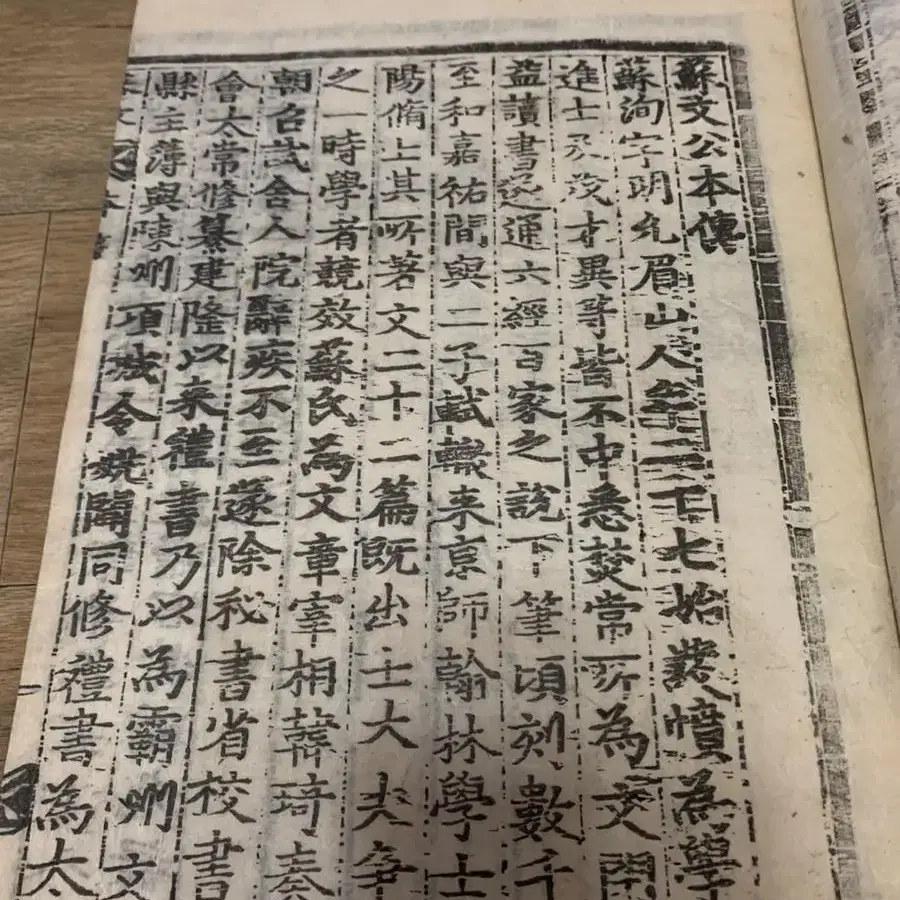 蘇文公本傳
蘇洵字明允眉山人年二十七始發憤為學
進士及茂才異等皆不中悉焚常所為文閉
益讀書遂通六經百家之說下筆頃刻數千
至和嘉祐間與二子軾轍来京師翰林學士
陽脩上其所著文二十二篇既出士大夫爭
之一時學者競效蘇氏為文章宰相韓琦奏
朝召試舍人院辭疾不至遂除秘書省校書
會太常修纂建隆以来禮書乃以為霸州文
縣主薄與陳州項城令姚闢同修禮書為太